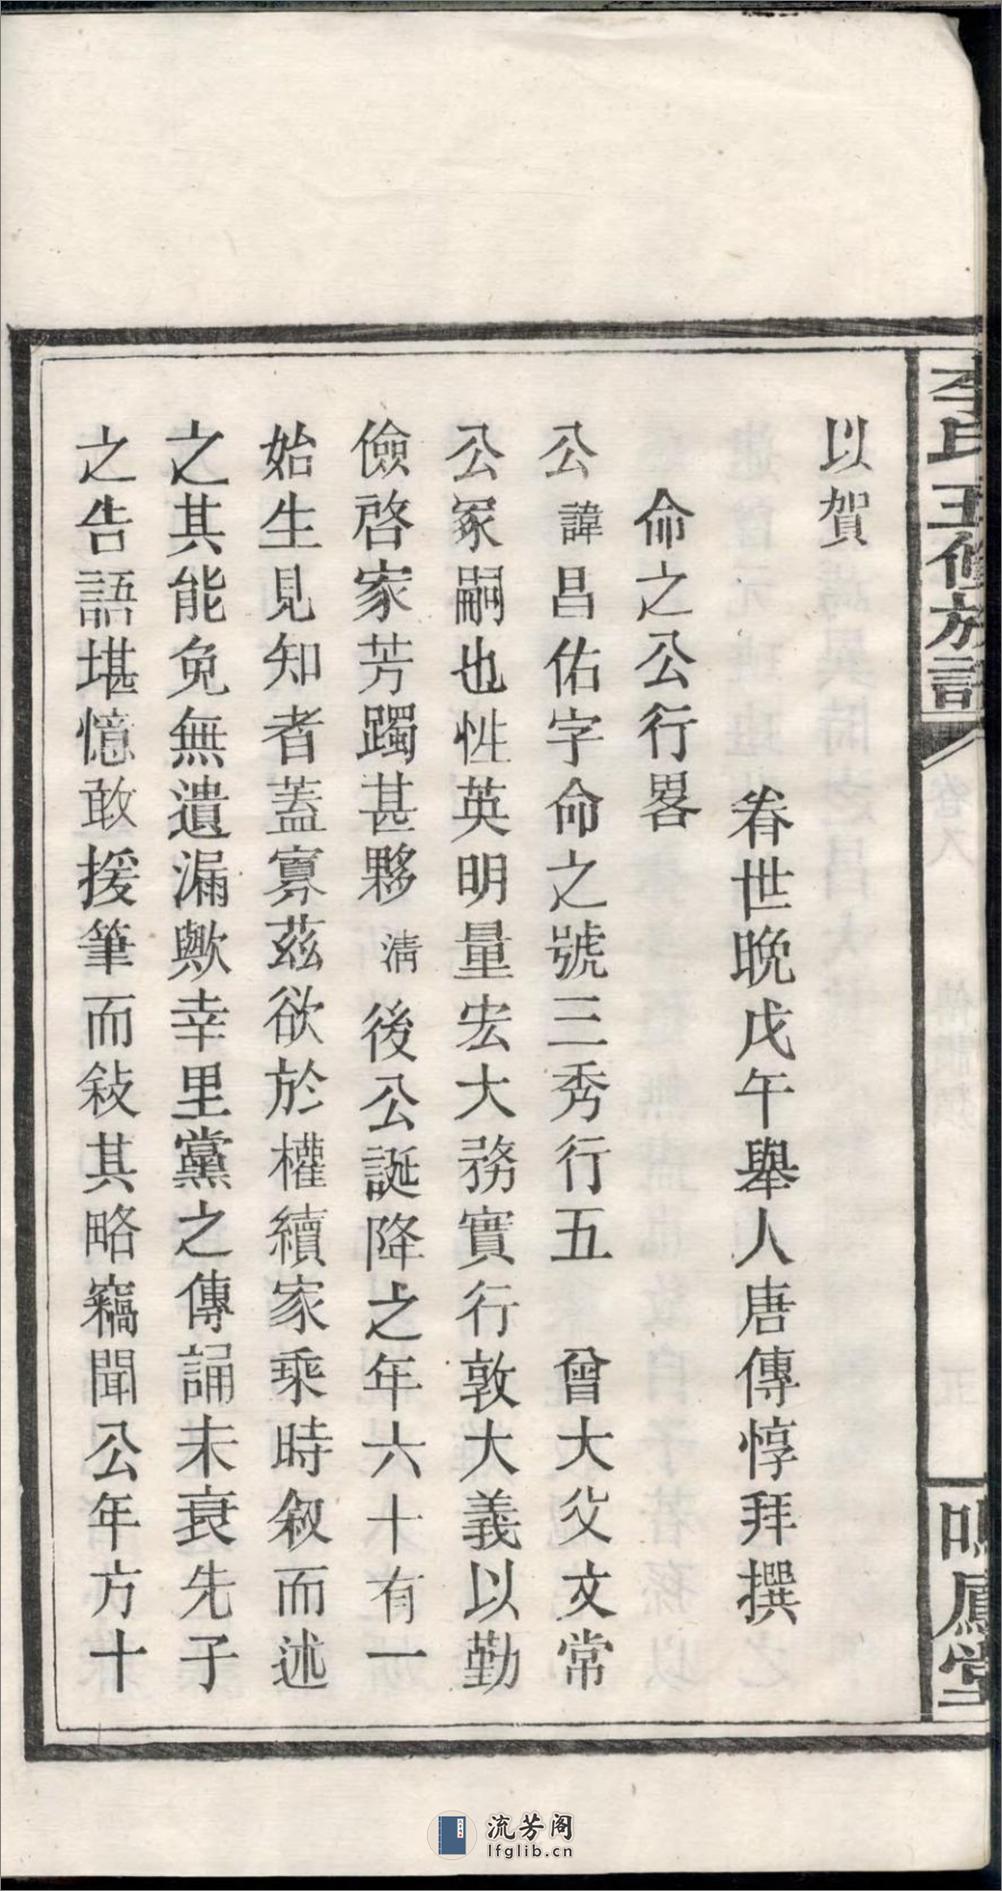 以賀
眷世晚戊午舉人唐傳惇拜撰
命之公行畧
公諱昌佑字命之號三秀行五曾大父文常
公冢嗣也性英明量宏大務實行敦大義以勤
儉啓家芳躅甚夥淸後公誕降之年六十有一
始生見知者蓋寡茲欲於權續家乘時叙而述
之其能免無遺漏歟幸里黨之傳誦未衰先子
之告語堪憶敢援筆而敍其略竊聞公年方十
李氏五修族譜
卷
五
鳴鳳堂
流芳阁
lfglib.cn